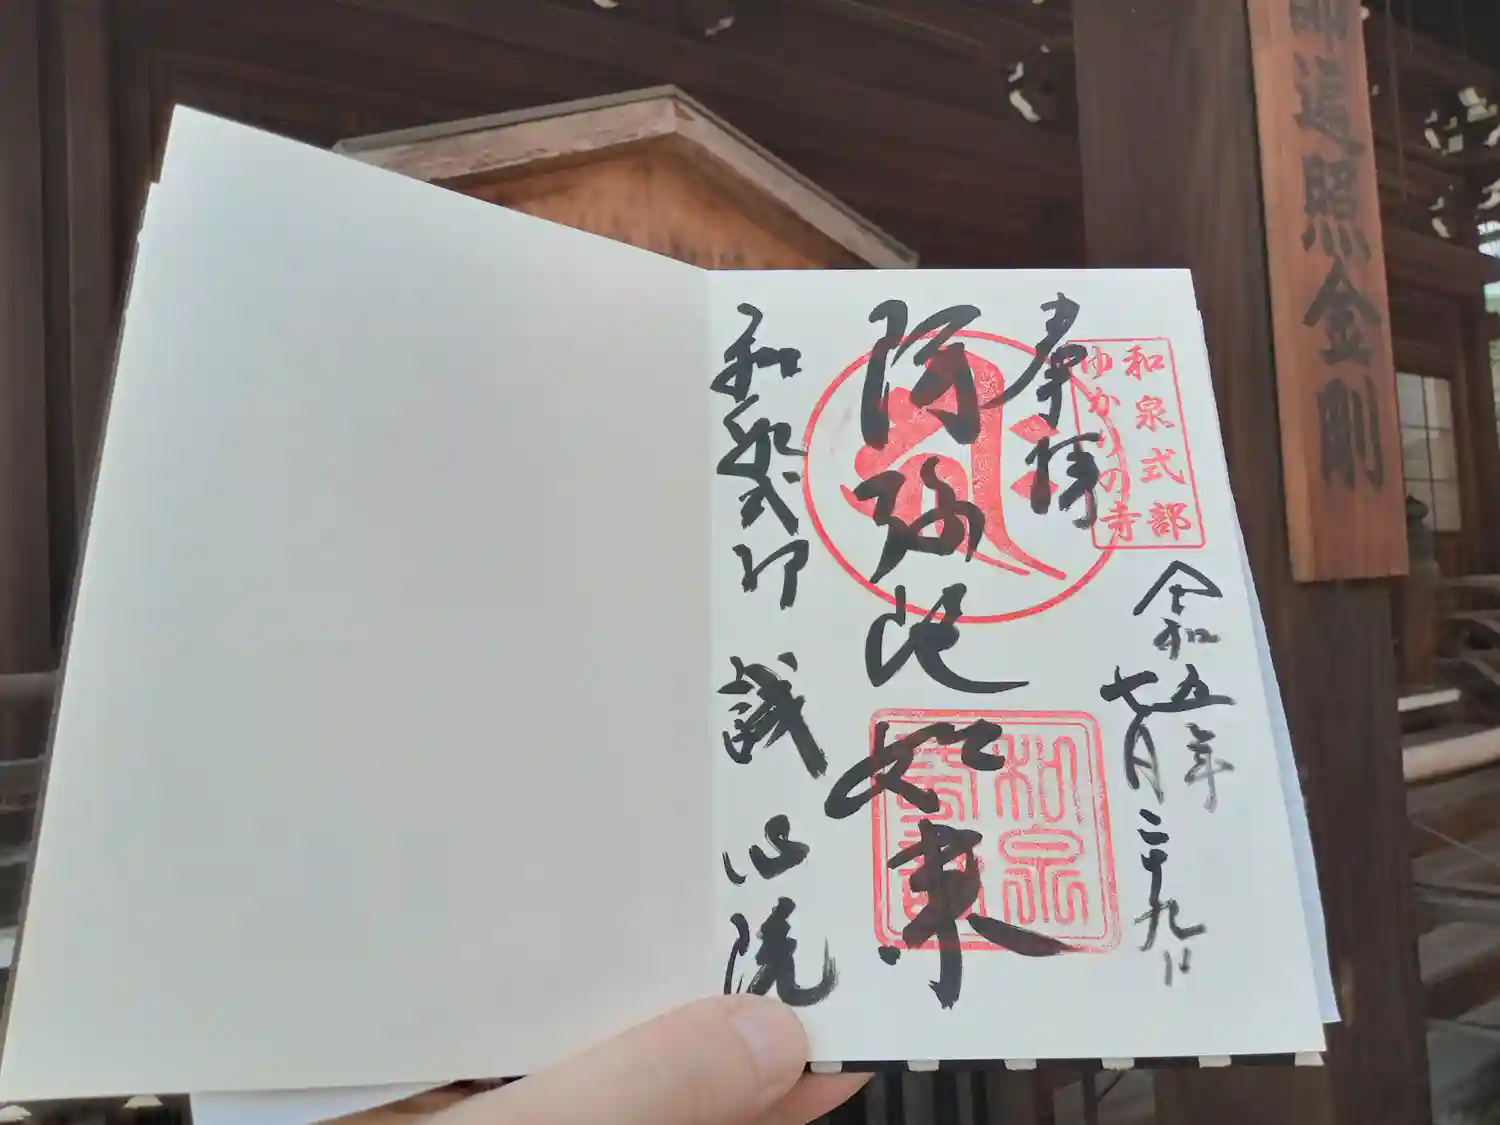 師遍照金剛
和泉式部
ゆかりの寺
奉拝
令和五年
七月二十九日
阿弥陀如来
和泉
式部
和泉式部 誠心院